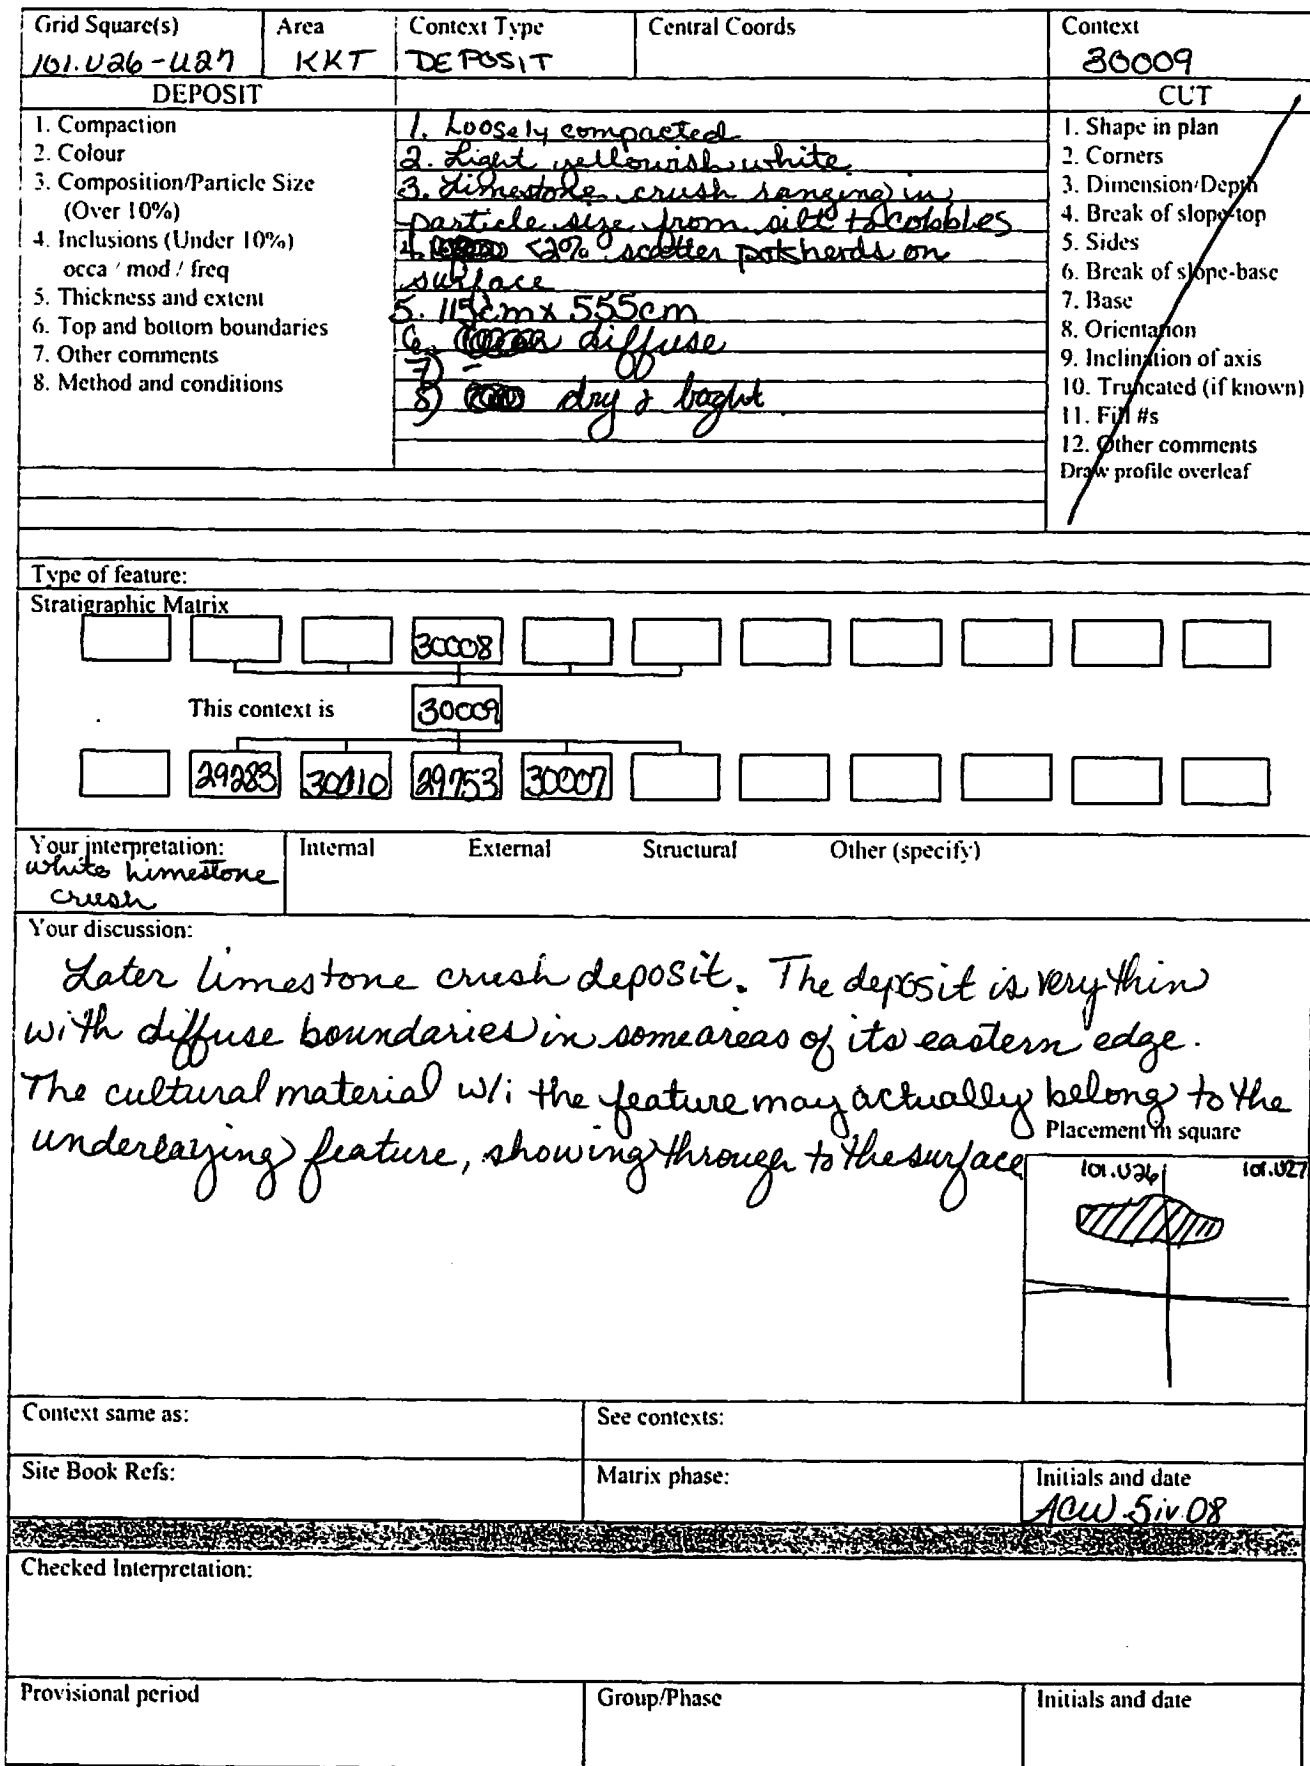 Grid Square(s) Area Context Type Central Coords Context
101.U26-U27 KKT DEPOSIT 30009
DEPOSIT CUT
1. Compaction
2. Colour
3. Composition/Particle Size
(Over 10%)
4. Inclusions (Under 10%)
occa / mod / freq
5. Thickness and extent
6. Top and bottom boundaries
7. Other comments
8. Method and conditions
1. Loosely compacted
2. Light yellowish white
3. Limestone crush ranging in
particle size from silt to cobbles
4. <2% scatter potsherds on
surface
5. 115cm x 555cm
6. diffuse
7) -
8) dry &
1. Shape in plan
2. Corners
3. Dimension/Depth
4. Break of slope-top
5. Sides
6. Break of slope-base
7. Base
8. Orientation
9. Inclination of axis
10. Truncated (if known)
11. Fill #s
12. Other comments
Draw profile overleaf
Type of feature:
Stratigraphic Matrix
30008
This context is 30009
29283 30010 29753 30007
Your interpretation: Internal External Structural Other (specify)
white limestone
crush
Your discussion:
Later limestone crush deposit. The deposit is very thin
with diffuse boundaries in some areas of its eastern edge.
The cultural material w/i the feature may actually belong to the
underlaying feature, showing through to the surface
Placement in square
101.U26 101.U27
Context same as: See contexts:
Site Book Refs: Matrix phase: Initials and date
ACW 5iv08
Checked Interpretation:
Provisional period Group/Phase Initials and date